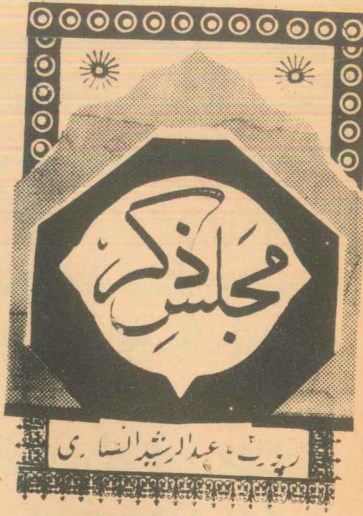 مجلسِ ذکر
رپورٹ، عبدالرشید انصاری